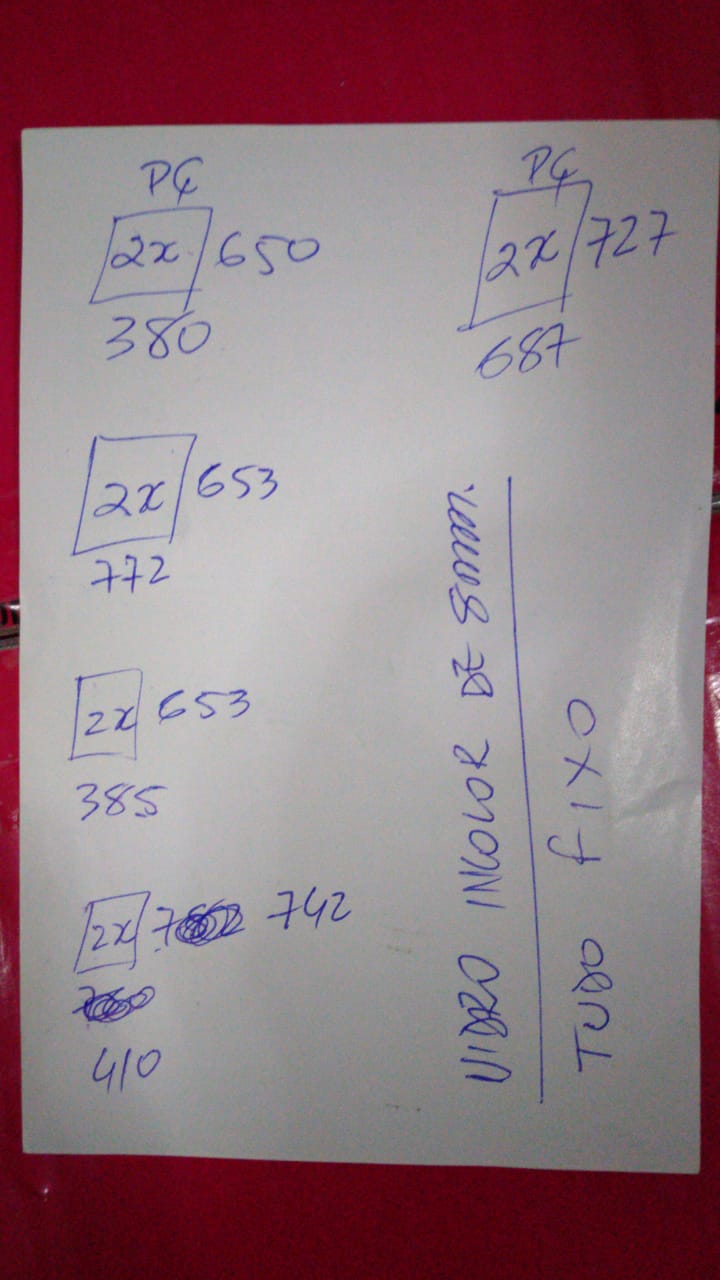 PÇ
2x 650
380
2x 653
772
2x 653
385
2x 742
410
PÇ
2x 727
687
VIDRO INCOLOR DE 8mm.
TUDO fIXO